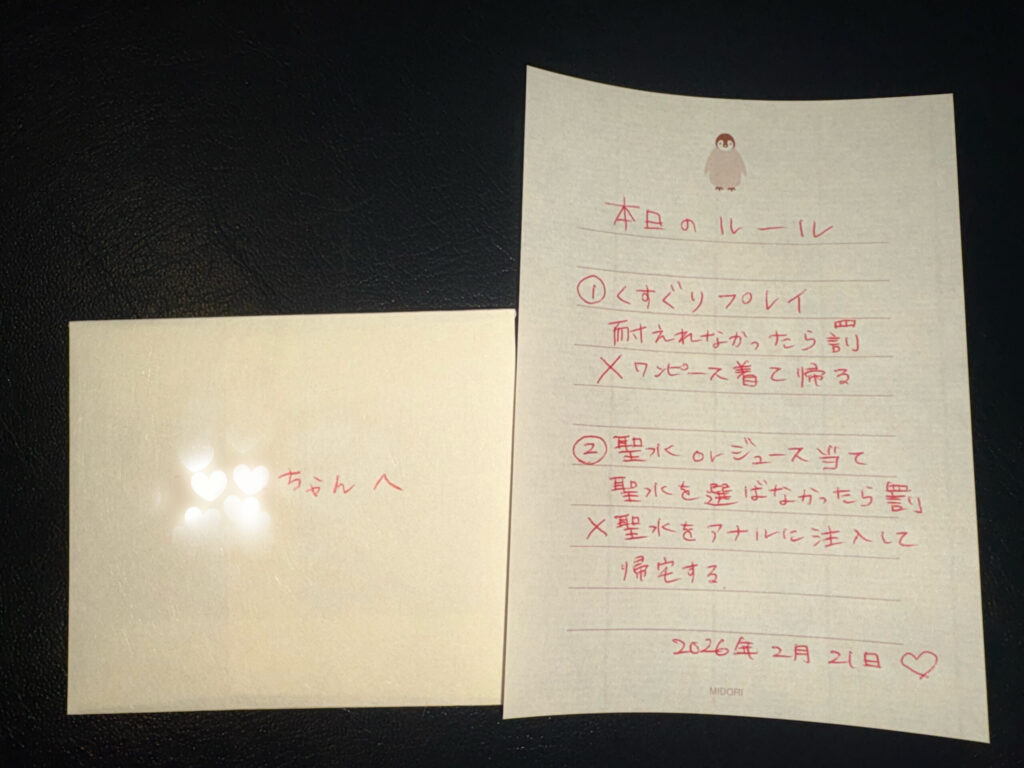 ちゃんへ
本日のルール
①くすぐりプレイ
耐えれなかったら罰
×ワンピース着て帰る
②聖水orジュース当て
聖水を選ばなかったら罰
×聖水をアナルに注入して
帰宅する
2026年2月21日♡
MIDORI